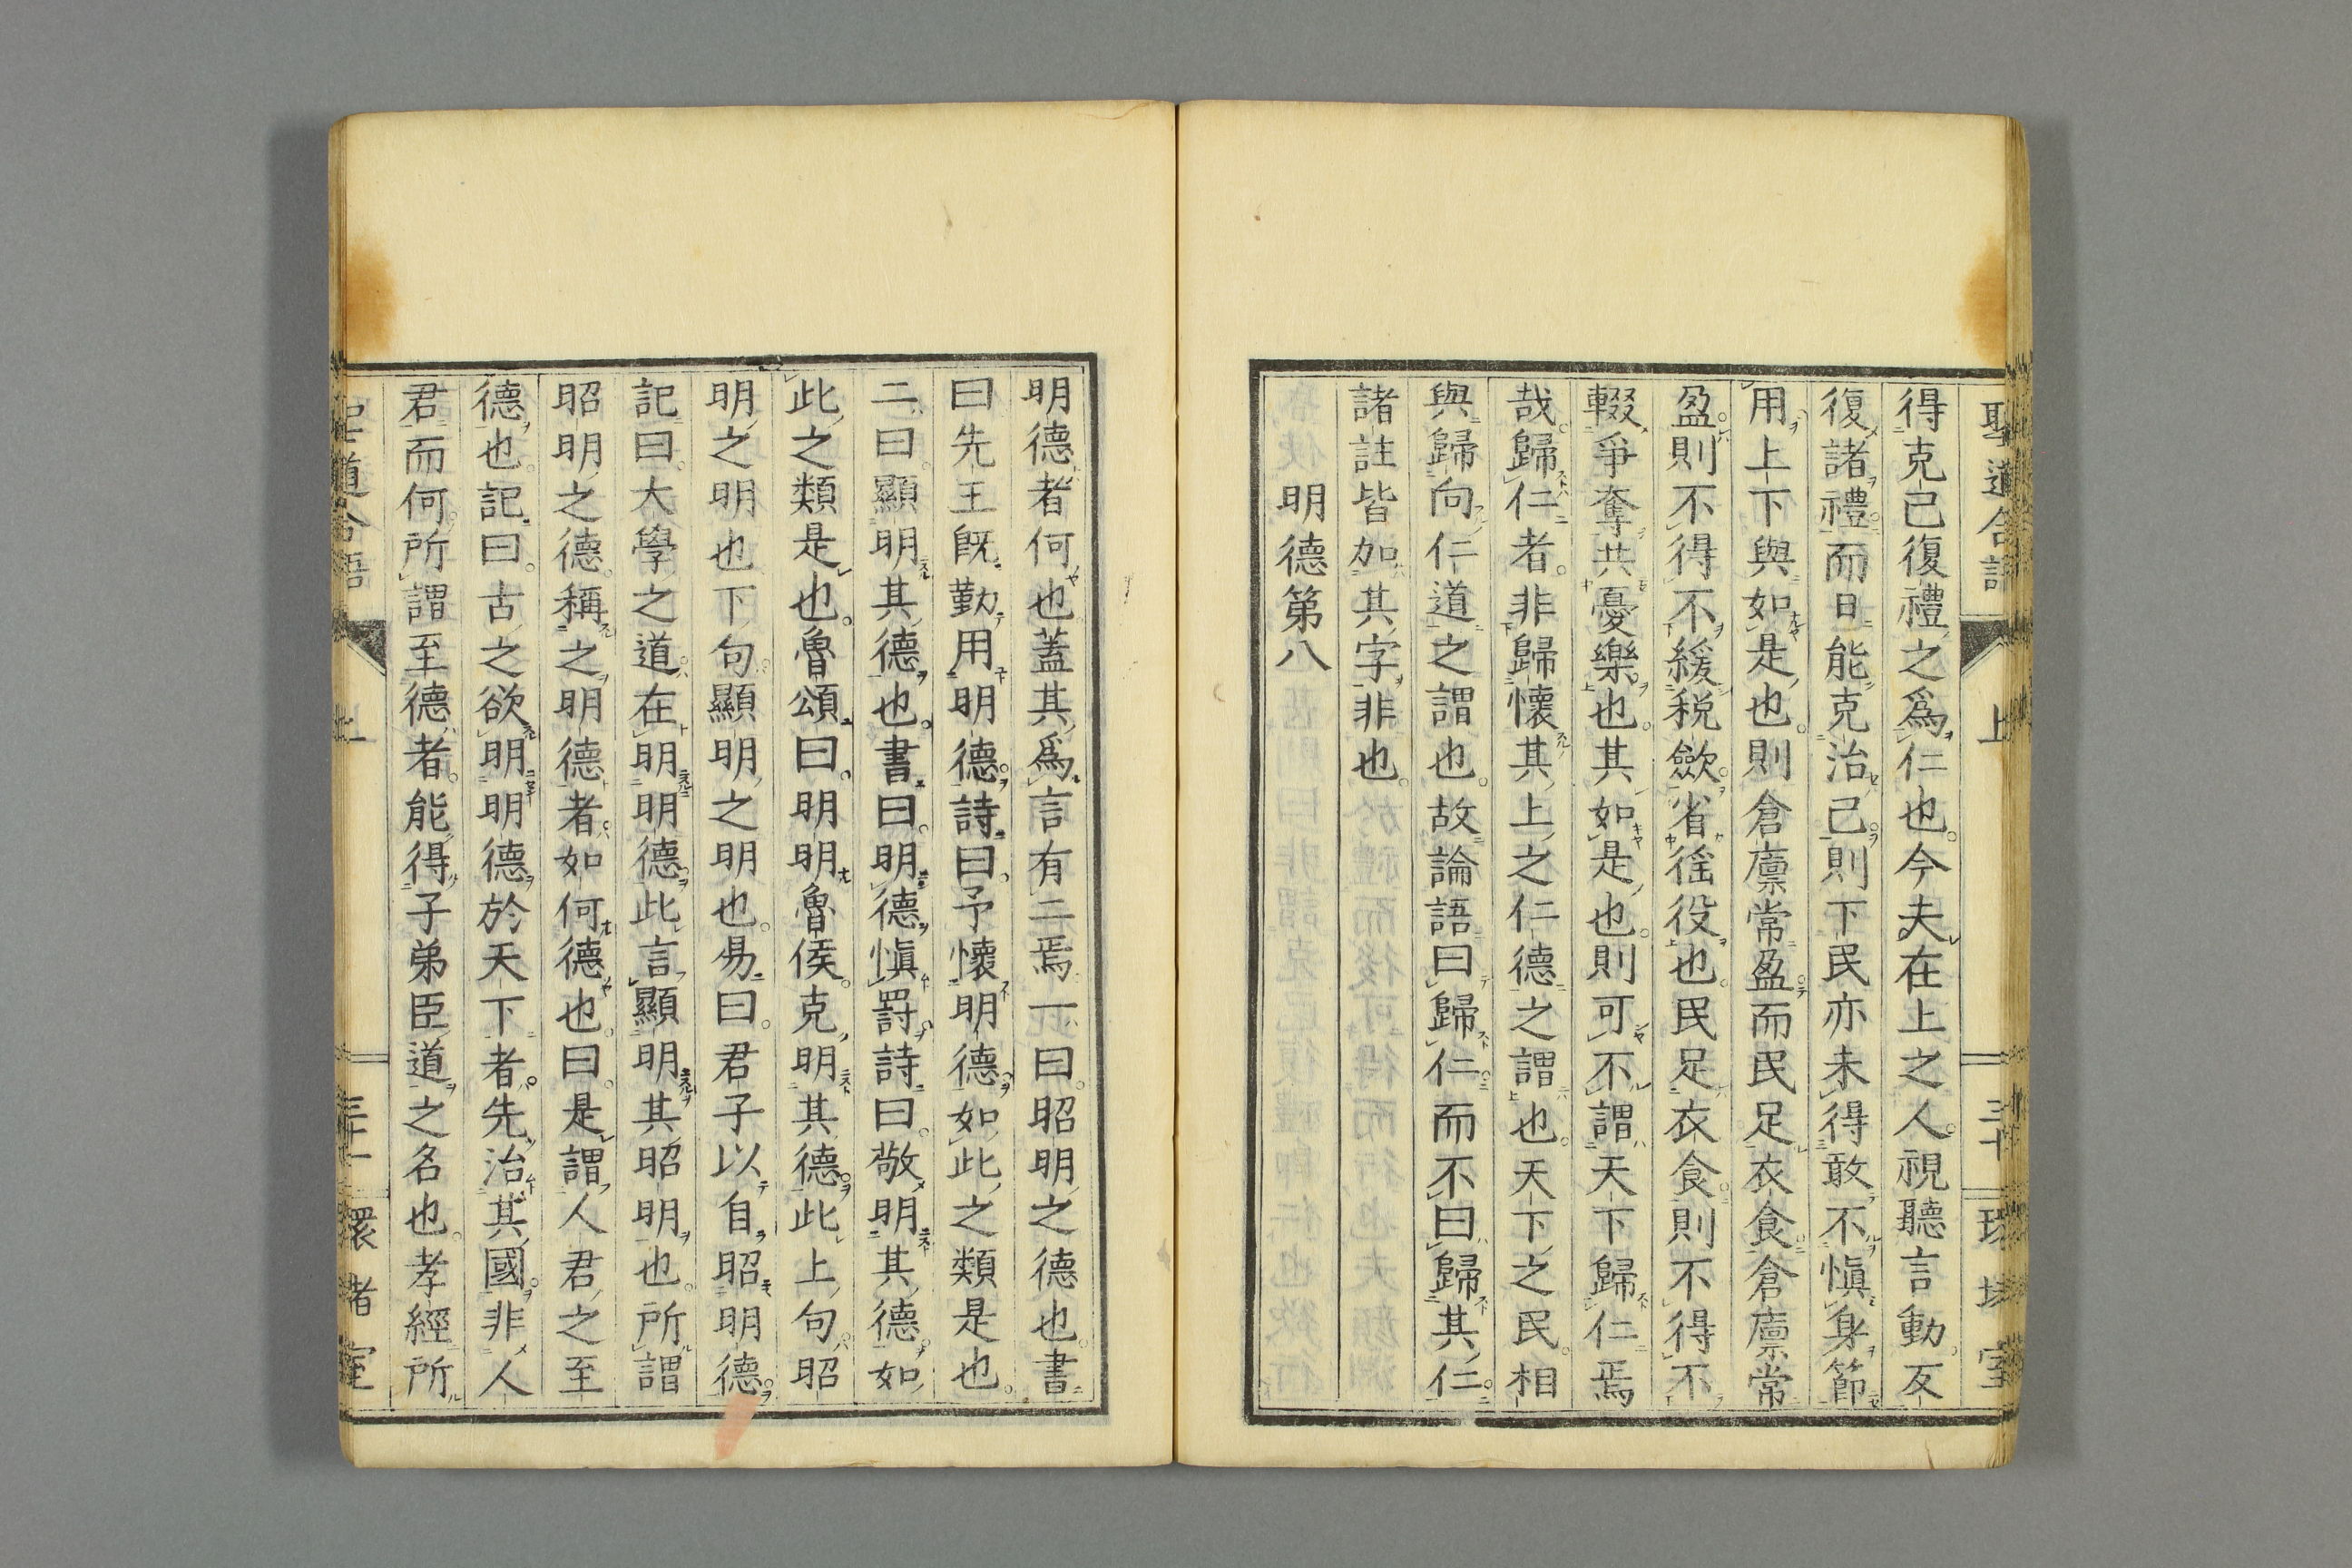 聖道合語 上 三十 環堵室
得克己復禮之爲仁也。今夫在上之人。視聽言動。反
復諸禮。而日能克治己。則下民亦未得敢不愼身節
用。上下與如是也。則倉廩常盈而民足衣食。倉廩常
盈。則不得不緩稅歛。省徭役也。民足衣食。則不得不
輟爭奪共憂樂也。其如是也。則可不謂天下歸仁焉
哉。歸仁者。非歸懷其上之仁德之謂也。天下之民。相
與歸向仁道之謂也。故論語曰歸仁。而不曰歸其仁。
諸註皆加其字非也。
明德第八
明德者何也。蓋其爲言有二焉。一曰。昭明之德也。書
曰。先王既勤用明德。詩曰。予懷明德。如此之類是也。
二曰。顯明其德也。書曰。明德愼罰。詩曰。敬明其德。如
此之類是也。魯頌曰。明明魯侯。克明其德。此上句昭
明之明也。下句顯明之明也。易曰。君子以自昭明德。
記曰。大學之道。在明明德。此言顯明其昭明也。所謂
昭明之德。稱之明德者。如何德也。曰。是謂人君之至
德也。記曰。古之欲明明德於天下者。先治其國。非人
君而何。所謂至德者。能得子弟臣道之名也。孝經所
道合語 上 三十一 環堵室